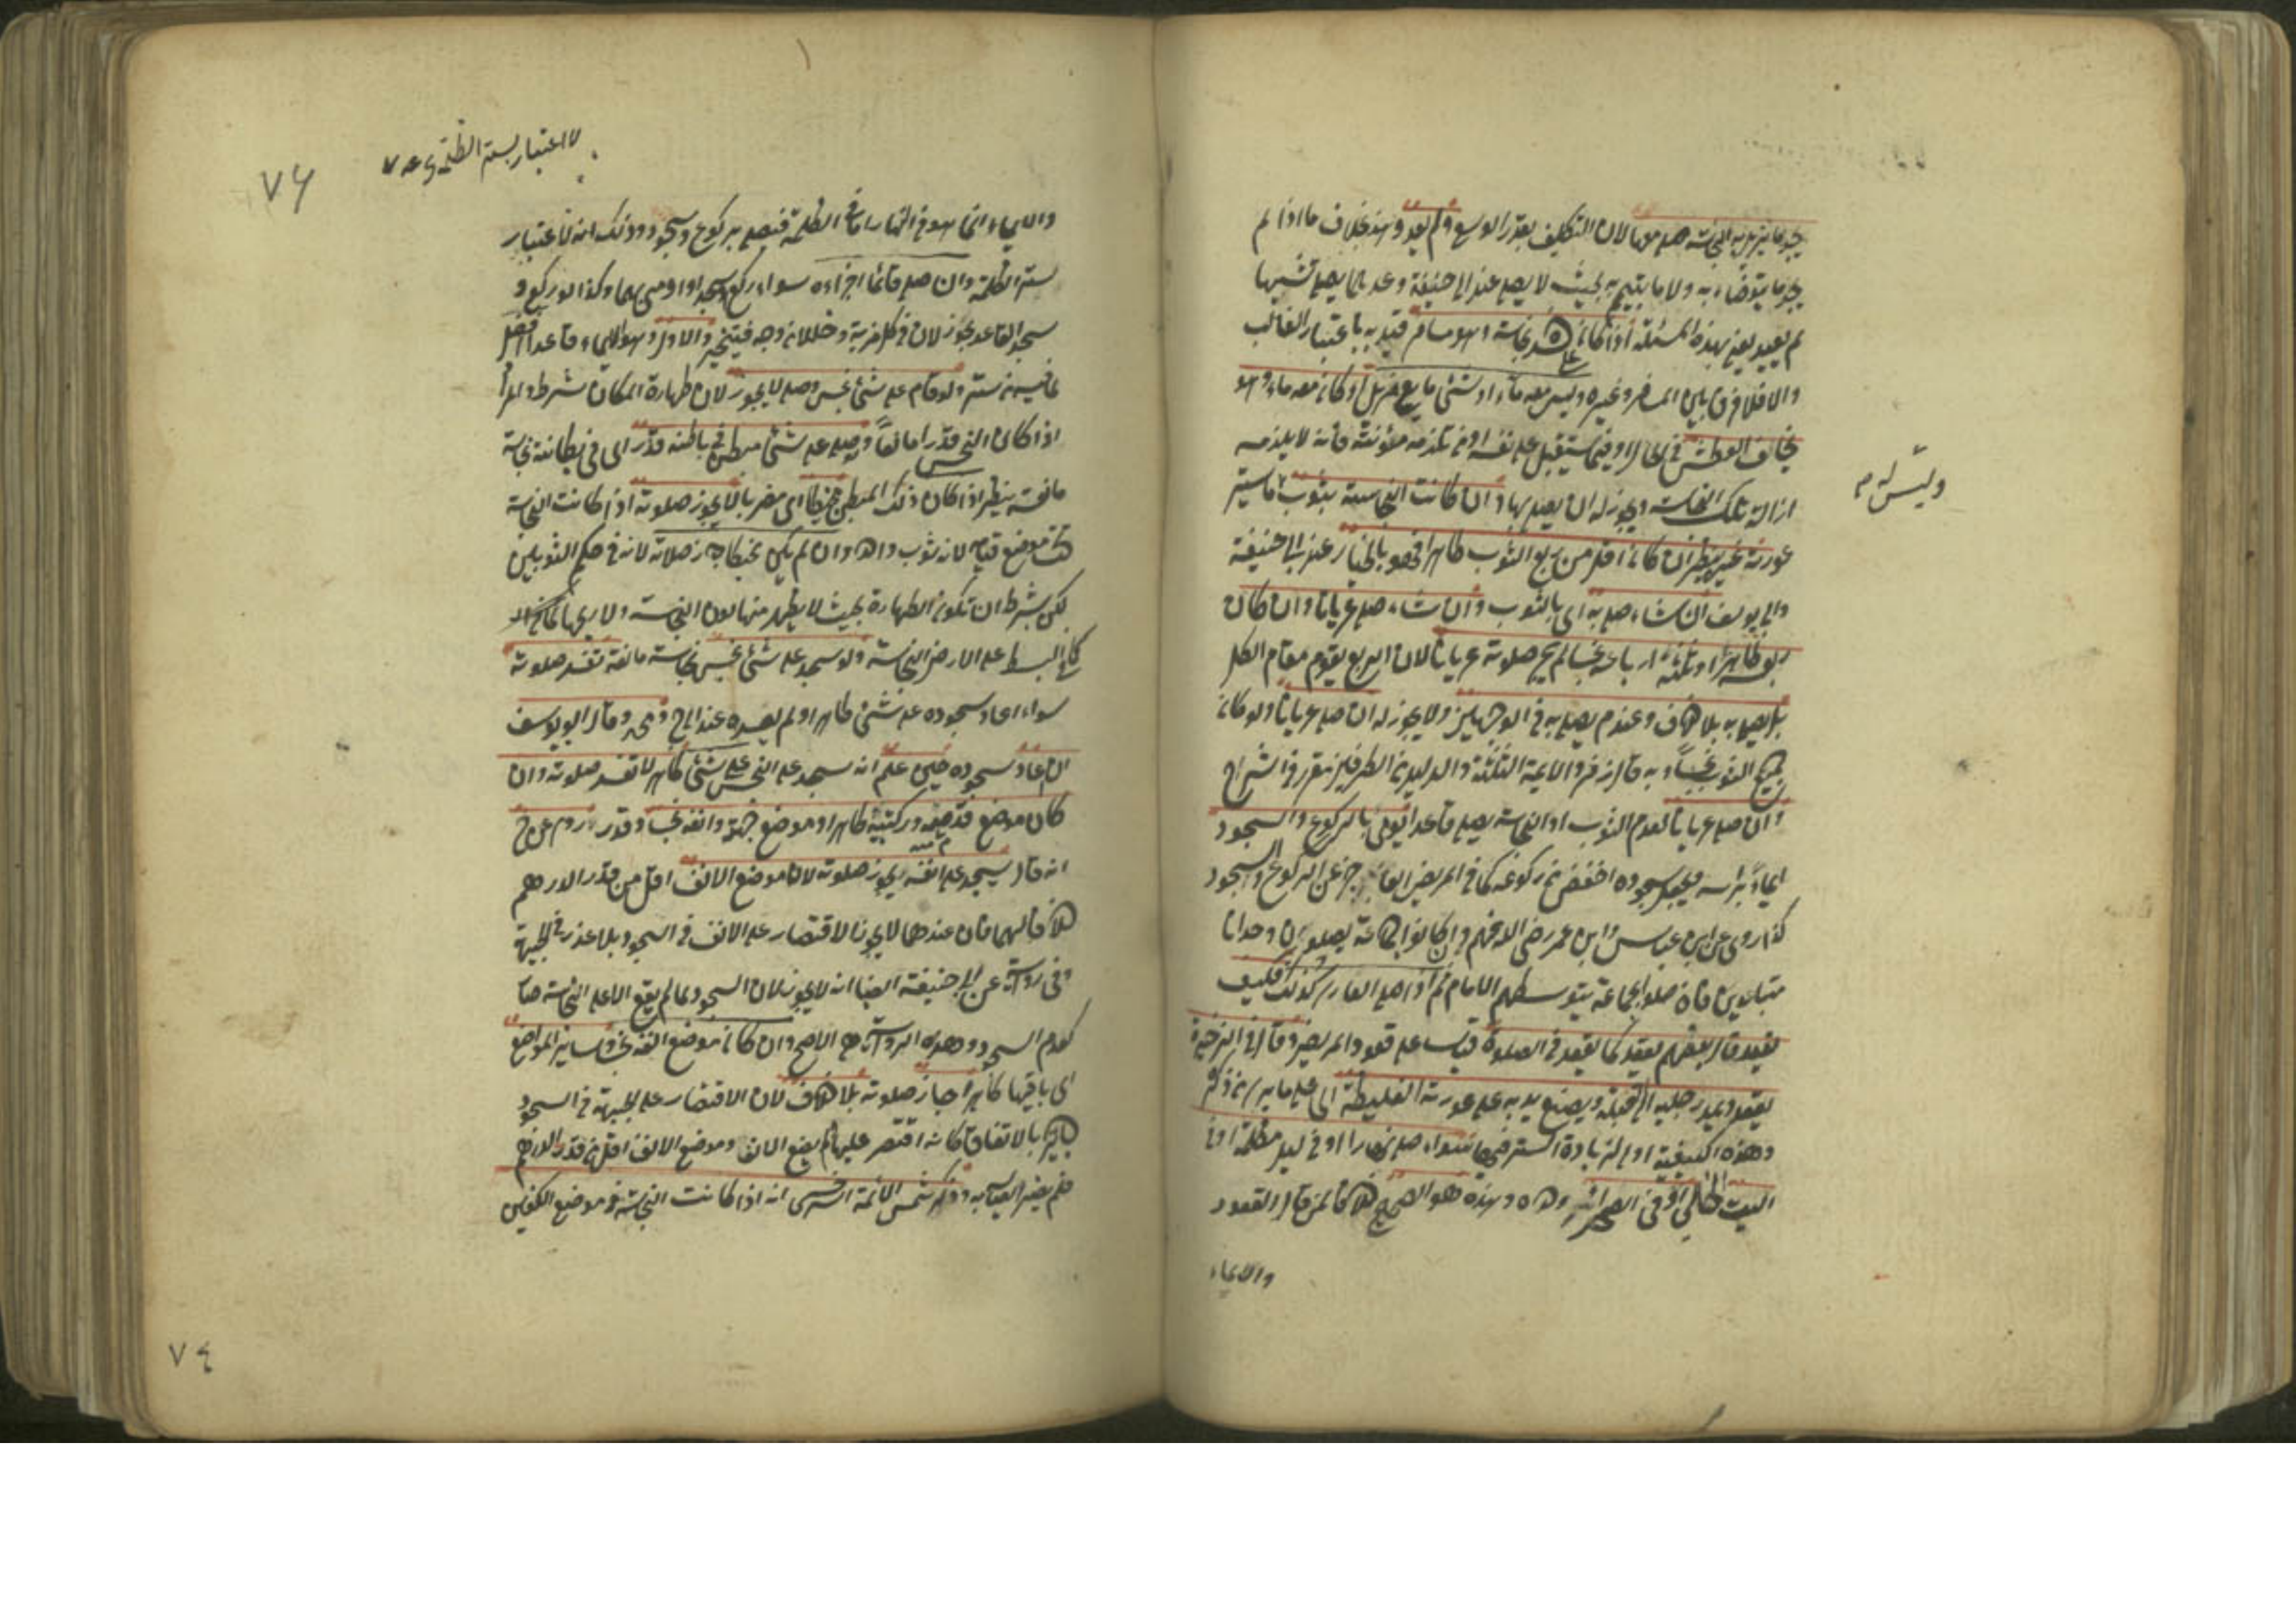 يجد ما يزيل به النجاسة صلى معها لان التكليف بقدر الوسع ولم يعد وهذا بخلاف ما اذا لم
يجد ما يتوضاء به ولا ما يتيمم به بحيث لا يصلى عند ابى حنيفة وعندهما يصلى تشبها
ثم يعيد يعنى بهذه المسئلة اذا كان على جسده نجاسة وهو مسافر قيد به باعتبار الغالب
والا فلا فرق بين المسافر وغيره وليس معه ماء او شئ مايع مزيل او كان معه ماء وهو
يخاف العطش فى الحال او فيما يستقبل على نفسه او من تلزمه مؤنته فانه لا يلزمه
ازالة تلك النجاسة ويجوز له ان يصلى بها وان كانت النجاسة بثوب ما يستر
وليس له
عورته غيره ينظر ان كان اقل من ربع الثوب طاهرا فهو بالخيار عند ابى حنيفة
وابى يوسف ان شاء صلى به اى بالثوب وان شاء صلى عريانا وان كان
ربعه طاهرا وثلثة ارباعه نجسا لم يجز صلوته عريانا لان الربع يقوم مقام الكل
بل يصلى به بلا خلاف وعند م يصلى به فى الوجهين ولا يجوز له ان صلى عريانا ولو كان
جميع الثوب نجسا وبه قال زفر والايمة الثلثة والدليل من الطرفين مقرر فى الشراح
وان صلى عريانا لعدم الثوب او النجاسة يصلى قاعدا يومى بالركوع والسجود
ايماء براسه ويجعل سجوده اخفض من ركوعه كما فى المريض العاجز عن الركوع والسجود
كذا روى عن ابن عباس وابن عمر رضى الله عنهم وان كانوا جماعة يصلون وحدانا
متباعدين فان صلوا بجماعة يتوسطهم الامام ثم اذا صلى العارى كذلك فكيف
يقعد قال بعضهم يقعد كما يقعد فى الصلوة قياسا على قعود المريض وقال فى الذخيرة
يقعد ويمد رجليه الى القبلة ويضع يديه على عورته الغليظة
وهذه الكيفية اولى لزيادة الستر فيها سواء صلى نهارا او فى ليل مظلمة او فى
البيت الخالى او فى الصحراء وحده وهذه هو الصحيح خلافا لمن قال القعود
والايماء
لا اعتبار بستر الظلمة
٧٤
والايماء انما هو فى النهار اما فى الظلمة فيصلى بركوع وسجود وذلك انه لا اعتبار
ستر الظلمة وان صلى قائما اجزاءه سواء ركع وسجد او اومى بهما وكذا لو ركع و
سجد القاعد يجوز لان فى كل مزية وخللا من وجه فيتخير والاول وهو الايماء قاعدا افضل
لما فيه من ستر ولو قام على شئ نجس وصلى لا يجوز لان طهارة المكان شرط
اذا كان النجس قدرا مانعا ولو صلى على شئ مبطن فى باطنه قذر اى فى بطانته نجاسة
مانعة ينظر اذا كان ذلك المبطن مخيطا اى مضربا لا يجوز صلوته اذا كانت النجاسة
تحت موضع قيامه لانه ثوب واحد وان لم يكن مخيطا جاز صلاته لانه فى حكم الثوبين
لكن يشترط ان تكون الطهارة بحيث لا يظهر منها لون النجاسة ولا ريحها
كما فى البسط على الارض النجسة ولو سجد على شئ نجس نجاسة مانعة تفسد صلوته
سواء اعاد سجوده على شئ طاهر او لم يعده عند ابى ح ومحمد وقال ابو يوسف
ان اعاد سجوده حين علم انه سجد على النجس على شئ طاهر لا تفسد صلوته وان
كان موضع قدميه وركبتيه طاهرا وموضع جبهته وانفه نجسا وقد روى عن ح
انه قال يسجد على انفه يجوز صلوته لان موضع الانف اقل من قدر الدرهم
خلافا لهما فان عندهما لا يجوز الاقتصار على الانف فى السجود بلا عذر فى الجبهة
وفى رواية عن ابى حنيفة ايضا انه لا يجوز لان السجود لما لم يقع الا على النجاسة صار
كعدم السجود وهذه الرواية هى الاصح وان كان موضع انفه نجسا وساير المواضع
اى باقيها طاهرا جاز صلوته بلا خلاف لان الاقتصار على الجبهة فى السجود
جايز بالاتفاق كانه اقتصر عليها ولم يضع الانف وموضع الانف اقل من قدر الدرهم
فلم يضر اصابه وذكر شمس الائمة السرخسى انه اذا كانت النجاسة فى موضع الكفين
٧٤